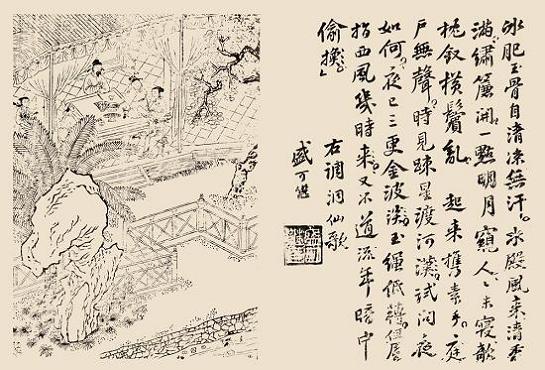 冰肌玉骨自清涼無汗。水殿風來清香
滿。繡簾開。一點明月窺人。人未寢欹
枕釵橫鬢亂。 起來攜素手。庭
戶無聲。時見疎星渡河漢。試問夜
如何。夜已三更金波淡。玉繩低轉。但屈
指西風幾時來。又不道流年暗中
偷換
右調洞仙歌
盛可